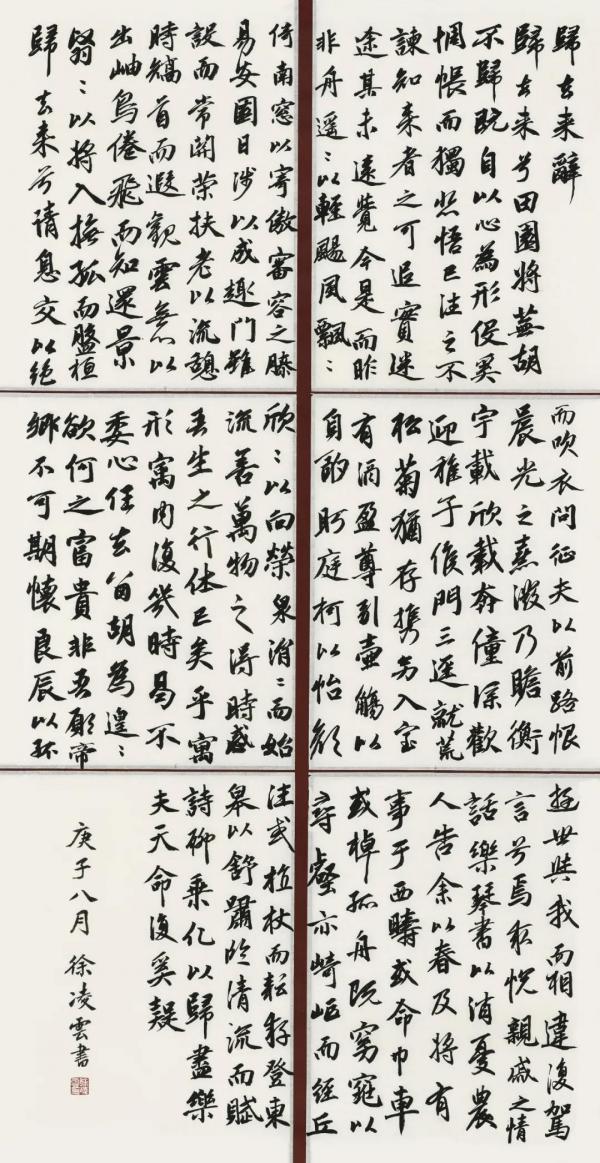 歸去来辭
歸去来兮田園將蕪胡
不歸既自以心為形役奚
惆悵而獨悲悟已往之不
諫知来者之可追實迷
途其未遠覺今是而昨
非舟遥〻以輕颺風飄〻
而吹衣問征夫以前路恨
晨光之熹微乃瞻衡
宇載欣載奔僮僕歡
迎稚子候門三逕就荒
松菊猶存携幼入室
有酒盈尊引壺觴以
自酌眄庭柯以怡顏
倚南窓以寄傲審容之膝
易安園日涉以成趣門雖
設而常關策扶老以流憩
時矯首而遐觀雲無以
出岫鳥倦飛而知還景
翳〻以將入撫孤而盤桓
歸去来兮請息交以絶
遊世與我而相違復駕
言兮焉求悅親戚之情
話樂琴書以消憂農
人告余以春及將有
事于西疇或命巾車
或棹孤舟既窈窕以
尋壑亦崎嶇而經丘
欣〻以向榮泉涓〻而始
流善萬物之得時感
吾生之行休已矣乎寓
形寓内復幾時曷不
委心任去留胡為遑〻
欲何之富貴非吾願帝
鄉不可期懷良辰以孤
往或植杖而耘耔登東
皋以舒嘯於清流而賦
詩聊乘化以歸盡樂
夫天命復奚疑
庚子八月徐凌雲書